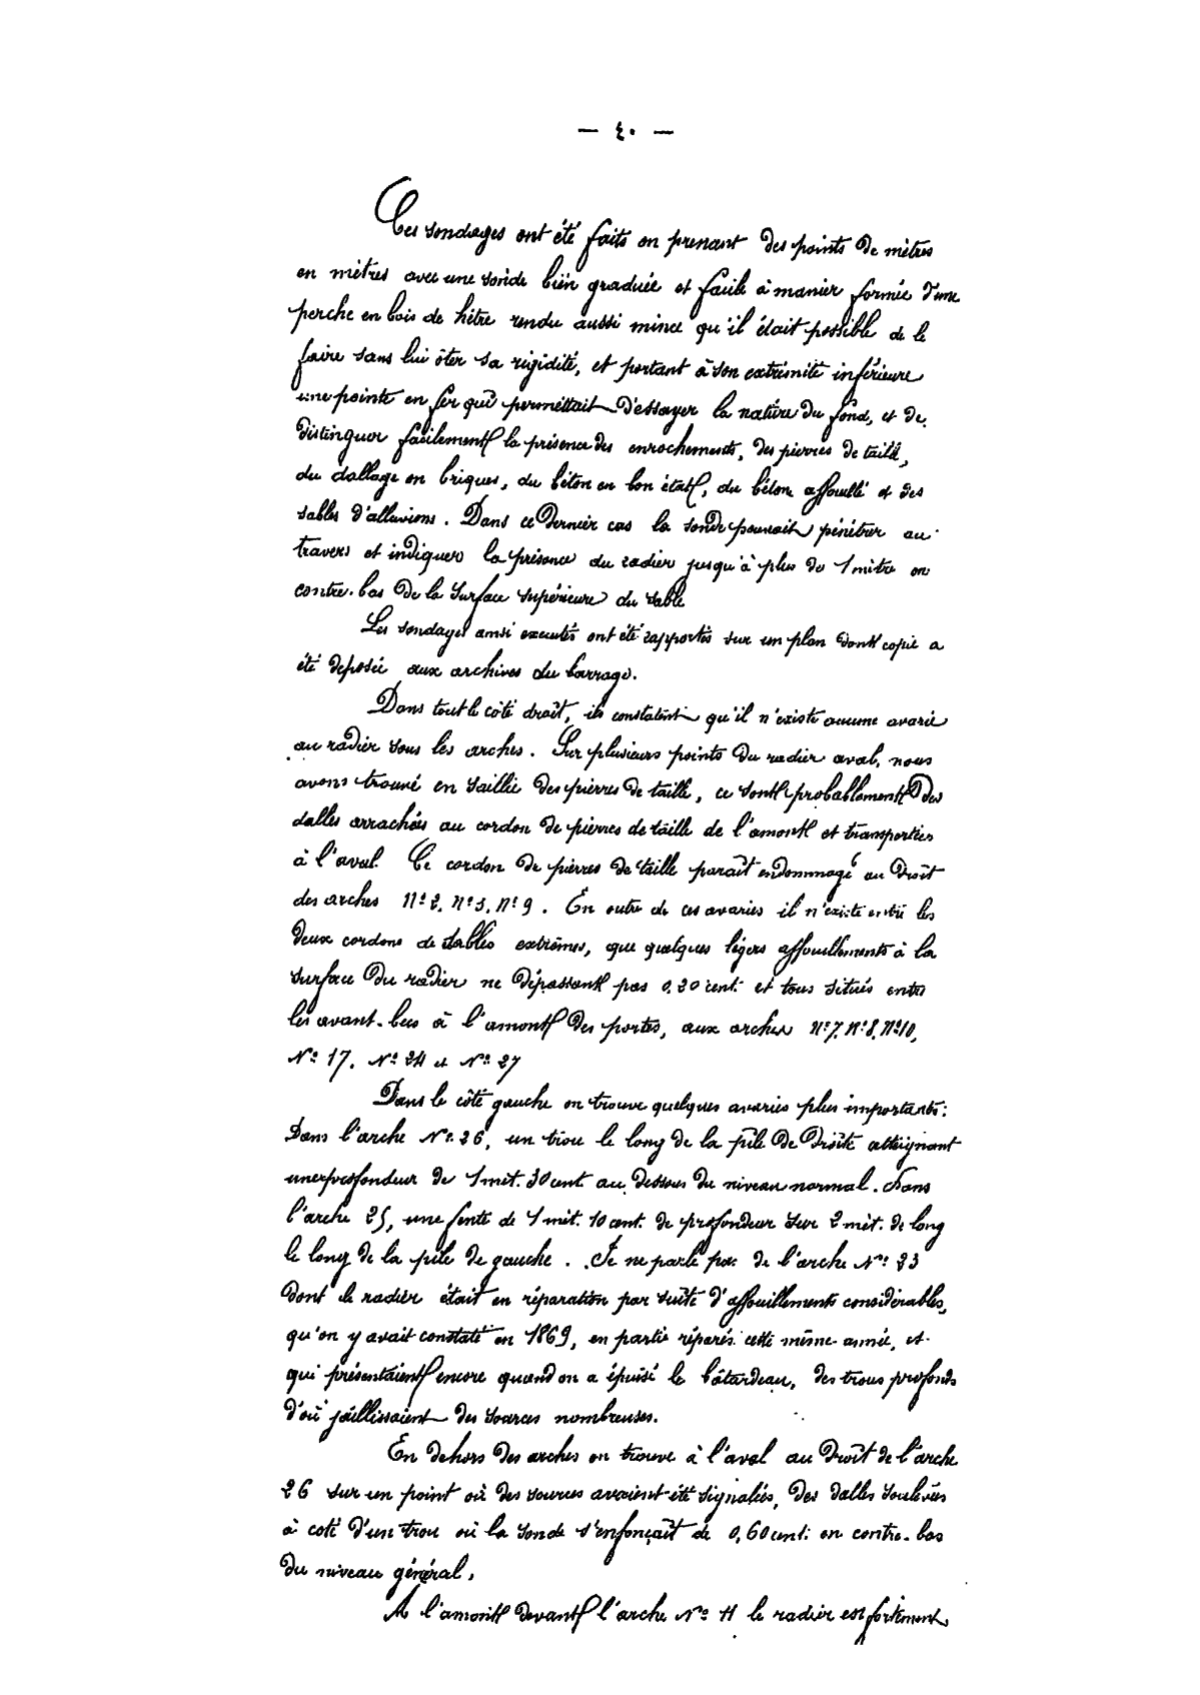 — ٤٠ —
Ces sondages ont été faits en prenant des points de mètres
en mètres avec une sonde bien graduée et facile à manier formée d'une
perche en bois de hêtre rendu aussi mince qu'il était possible de le
faire sans lui ôter sa rigidité, et portant à son extrémité inférieure
une pointe en fer qui permettait d'essayer la nature du fond, et de
distinguer facilement la présence des enrochements, des pierres de taille,
du dallage en briques, du béton en bon état, du béton affouillé et des
sables d'alluvions. Dans ce dernier cas la sonde pouvait pénétrer au
travers et indiquer la présence du radier jusqu'à plus de 1 mètre en
contre-bas de la surface supérieure du sable
Les sondages ainsi executés ont été rapportés sur un plan dont copie a
été deposée aux archives du barrage.
Dans tout le côté droit, ils constatent qu'il n'existe aucune avarie
au radier sous les arches. Sur plusieurs points du radier aval, nous
avons trouvé en saillie des pierres de taille, ce sont probablement des
dalles arrachées au cordon de pierres de taille de l'amont et transportées
à l'aval. Ce cordon de pierres de taille paraît endommagé au droit
des arches N° 2, N° 3, N° 9. En outre de ces avaries il n'existe entre les
deux cordons de dalles extrêmes, que quelques légers affouillements à la
surface du radier ne dépassant pas 0,20 cent. et tous situés entre
les avant-becs à l'amont des portes, aux arches N° 7, N° 8, N° 10,
N° 17, N° 24 et N° 27
Dans le côté gauche on trouve quelques avaries plus importantes:
Dans l'arche N° 26, un trou le long de la pile de droite atteignant
une profondeur de 1 mèt. 30 cent au dessous du niveau normal. Dans
l'arche 25, une fente de 1 mèt. 10 cent. de profondeur sur 2 mèt. de long
le long de la pile de gauche. Je ne parle pas de l'arche N° 23
dont le radier était en réparation par suite d'affouillements considérables,
qu'on y avait constaté en 1869, en partie réparés cette même année, et
qui présentaient encore quand on a épuisé le bâtardeau, des trous profonds
d'où jaillissaient des sources nombreuses.
En dehors des arches on trouve à l'aval au droit de l'arche
26 sur un point où des sources avaient été signalées, des dalles soulevées
à coté d'un trou où la sonde s'enfonçait de 0,60 cent. en contre-bas
du niveau général,
A l'amont devant l'arche N° 11 le radier est fortement